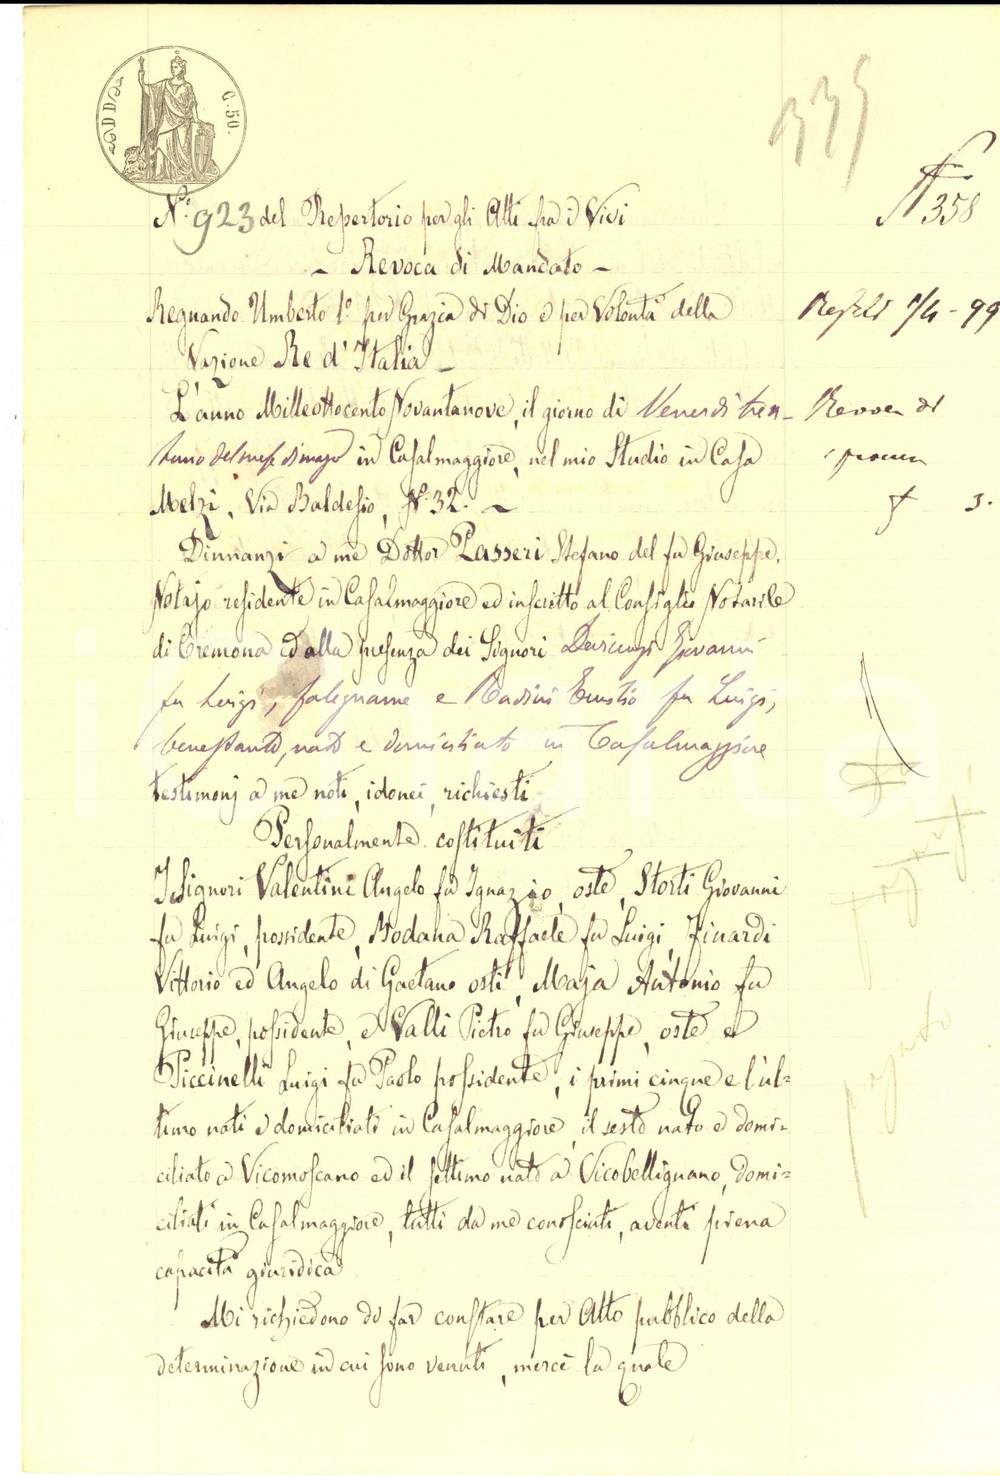 C. 50.
335
358
N.º 923 del Repertorio per gli Atti fra i Vivi
- Revoca di Mandato -
Regnando Umberto 1º per Grazia di Dio e per Volontà della
Nazione Re d'Italia -
L'anno Milleottocento Novantanove, il giorno di Venerdì tren-
tuno del mese di marzo in Casalmaggiore, nel mio Studio in Casa
Melzi, Via Baldesio, N.º 32. -
Dinnanzi a me Dottor Passeri Stefano del fu Giuseppe,
Notajo residente in Casalmaggiore ed inscritto al Consiglio Notarile
di Cremona ed alla presenza dei Signori Giovanni
fu Luigi, falegname e fu Luigi,
benestante, nati e domiciliati in Casalmaggiore
testimonj a me noti, idonei, richiesti
Personalmente costituiti
I Signori Valentini Angelo fu Ignazio, oste, Storti Giovanni
fu Luigi, possidente, Modana Raffaele fu Luigi, Finardi
Vittorio ed Angelo di Gaetano osti, Maja Antonio fu
Giuseppe, possidente, e Valli Pietro fu Giuseppe, oste e
Piccinelli Luigi fu Paolo possidente, i primi cinque e l'ul=
timo nati e domiciliati in Casalmaggiore, il sesto nato e domi=
ciliato a Vicomoscano ed il settimo nato a Vicobellignano, domi=
ciliati in Casalmaggiore, tutti da me conosciuti, aventi piena
capacità giuridica
Mi richiedono di far constare per Atto pubblico della
determinazione in cui sono venuti, mercè la quale
99
Revoca di
procura
3.